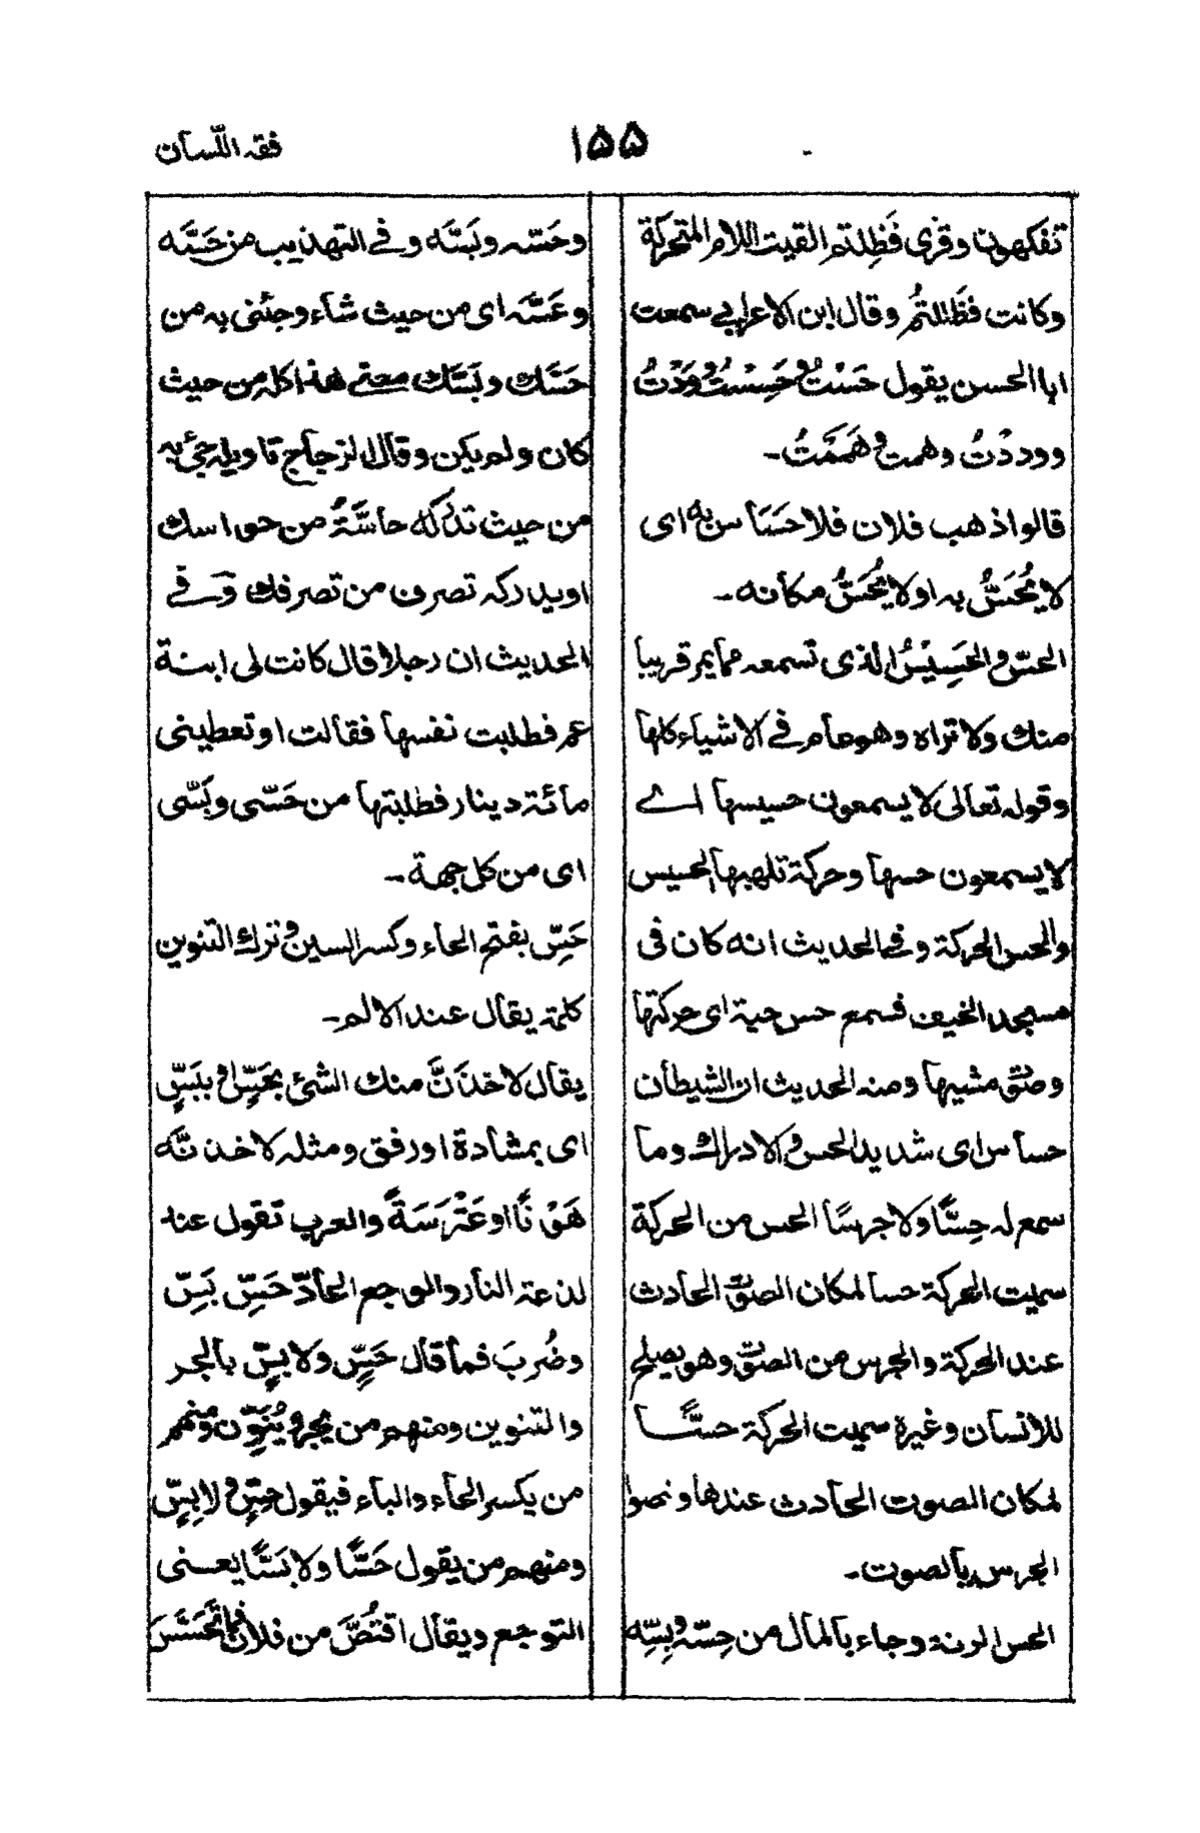 فقہ اللّسان
١٥٥
تفكهون وقرى فَظِلتم القيت اللام المتحركة
وكانت فظَلِلتُم وقال ابن الاعرابي سمعت
ابا الحسن يقول حَسْتُ وحَسِسْتُ ووَدْتُ
وودِدْتُ وهمت وهَمَمْتُ۔
قالوا ذهب فلان فلا حَسَاسِ به اى
لا يُحَسُّ به او لا يُحَسُّ مكانه۔
الحسّ والحَسِيْسُ الذى تسمعه مما يمر قريبا
منك ولا تراه وهو عام في الاشياء كلها
وقوله تعالى لا يسمعون حسيسها اے
لا يسمعون حسها وحركة تلهبها الحسيس
والحس الحركة وفي الحديث انه كان فى
مسجد الخيف فسمع حس حية اى حركتها
وصوت مشيها ومنه الحديث ان الشيطان
حساس اى شديد الحس والادراك وما
سمع له حِسًّا ولا جرسًا الحس من الحركة
سميت الحركة حسا لمكان الصوت الحادث
عند الحركة والجرس من الصوت وهو يصلح
للانسان وغيره سميت الحركة حسًّا
لمكان الصوت الحادث عندها ونصوا
الجرس بالصوت۔
الحس الرنة وجاء بالمال من حِسّه وبِسِّه
وحَسّه وبَسَّه وفي التهذيب من حَسَّه
وعَسَّه اى من حيث شاء وجئنى به من
حَسَّك وبَسَّك معنى هذا كله من حيث
كان ولم يكن وقال الزجاج تاويله جئ به
من حيث تدركه حاسَّةٌ من حواسك
او يدركه تصرف من تصرفك وفے
الحديث ان رجلا قال كانت لى ابنة
عم فطلبت نفسها فقالت او تعطينى
مائة دينار فطلبتها من حَسّى وبَسّى
اى من كل جهة۔
حَسِّ بفتح الحاء وكسر السين وترك التنوين
كلمة يقال عند الالم۔
يقال لاخذَنَّ منك الشئ بحَسٍّ او ببَسٍّ
اى بمشادة او رفق ومثله لاخذنّه
هَوْنًا او عَتْرَسَةً والعرب تقول عند
لذعة النار والوجع الحادّ حَسِّ بَسِّ
وضُرِبَ فما قال حَسٍّ ولا بسٍّ بالجر
والتنوين ومنهم من يجر ويُنَوِّن ومنهم
من يكسر الحاء والباء فيقول حِسٍّ ولا بِسٍّ
ومنهم من يقول حَسًّا ولا بَسًّا يعنى
التوجع ويقال اقتُصَّ من فلان فما تَحَسَّسَ